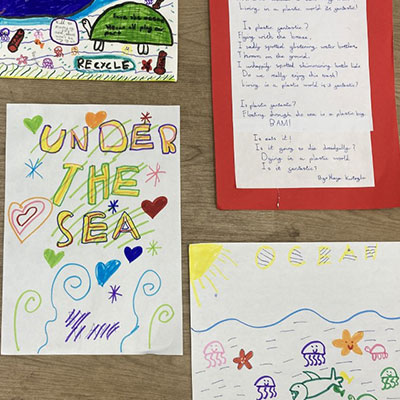 RECYCLE
Living in a plastic world is fantastic!
Is plastic fantastic?
Flying with the breeze,
I sadly spotted glistening water bottles
Thrown on the ground,
I unhappily spotted shimmering bottle lids
Do we really enjoy this mess?
Living in a plastic world is it fantastic?
Is plastic fantastic?
Floating through the sea is a plastic bag.
BAM!
It eats it!
Is it going to die dreadfully?
Dying in a plastic world
Is it fantastic?
By:
UNDER
THE
SEA
OCEAN